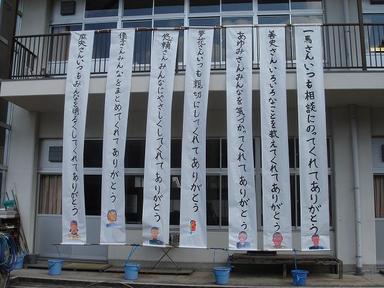 一馬さんいつも相談にのってくれてありがとう
善史さんいろいろなことを教えてくれてありがとう
あゆみさんみんなを気づかってくれてありがとう
芽花さんいつも親切にしてくれてありがとう
悠輔さんみんなにやさしくしてくれてありがとう
さんみんなをまとめてくれてありがとう
麻央さんいつもみんなを明るくしてくれてありがとう